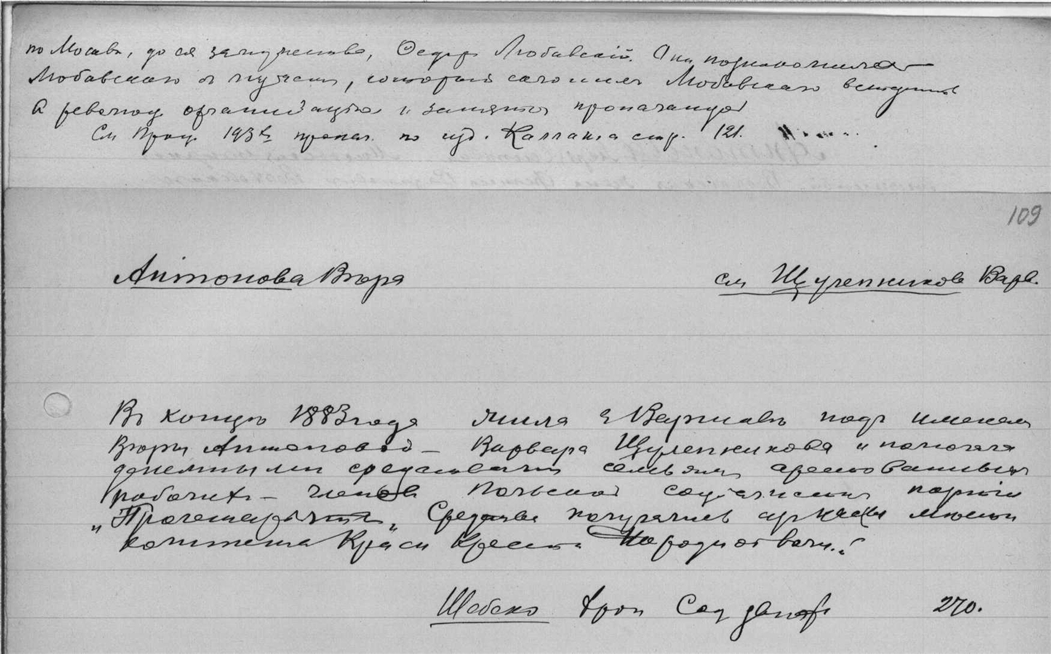 по Москвѣ, до ея замужества, Ѳедор Любавскій. Она познакомила
Любавскаго съ мужем, который склонилъ Любавскаго вступить
въ револ. организацію и заняться пропагандой
См Проц. 193х пропаг. по изд. Каллаша стр. 121.
109
Антонова Вѣра см Щулепникова Варв.
Въ концѣ 1883 года жила въ Варшавѣ подъ именем
Вѣры Антоновой – Варвара Щулепникова и помогала
денежными средствами семьям арестованных
рабочихъ – членов Польской социалист партіи
„Пролетаріат„ Средства получались
комитета Красн Креста Народной воли."
Шебеко Хрон Соц движ 270.